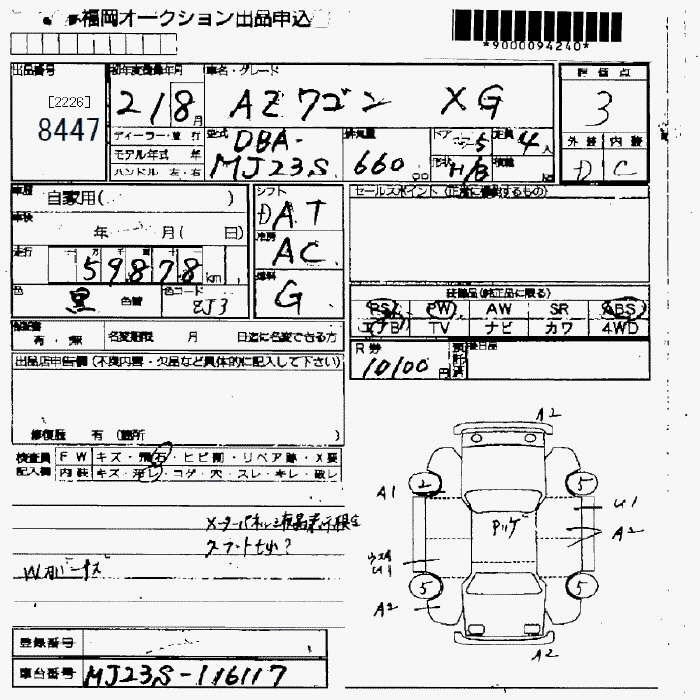 福岡オークション出品申込
*9000094240*
出品番号
[2226]
8447
初年度登録年月
21/8月
車名・グレード
AZワゴン XG
評価点
3
外装 内装
D C
ディーラー・並行
モデル年式 年
ハンドル 左・右
型式
DBA-
MJ23S
排気量
660 cc
ドア
5
形状
H/B
定員
4人
積載
車歴
自家用( )
車検
年 月( 日)
走行
59878 km
色
黒
色替
色コード
ZJ3
シフト
DAT
冷房
AC
燃料
G
セールスポイント (正常に機能するもの)
装備品(純正品に限る)
PS PW AW SR ABS
エアB TV ナビ カワ 4WD
保証書
有・無
名変期限 月 日迄に名変できる方
R券
10100円
後日品
出品店申告欄 (不良内容・欠品など具体的に記入して下さい)
修復歴 有 (箇所 )
検査員
記入欄
FW キズ・飛石・ヒビ割・リペア跡・X要
内装 キズ・汚レ・コゲ・穴・スレ・キレ・破レ
メーターパネル液晶表示
W
A2
2
5
A1
U1
A2
U1
5
5
A2
A2
登録番号
車台番号
MJ23S-116117